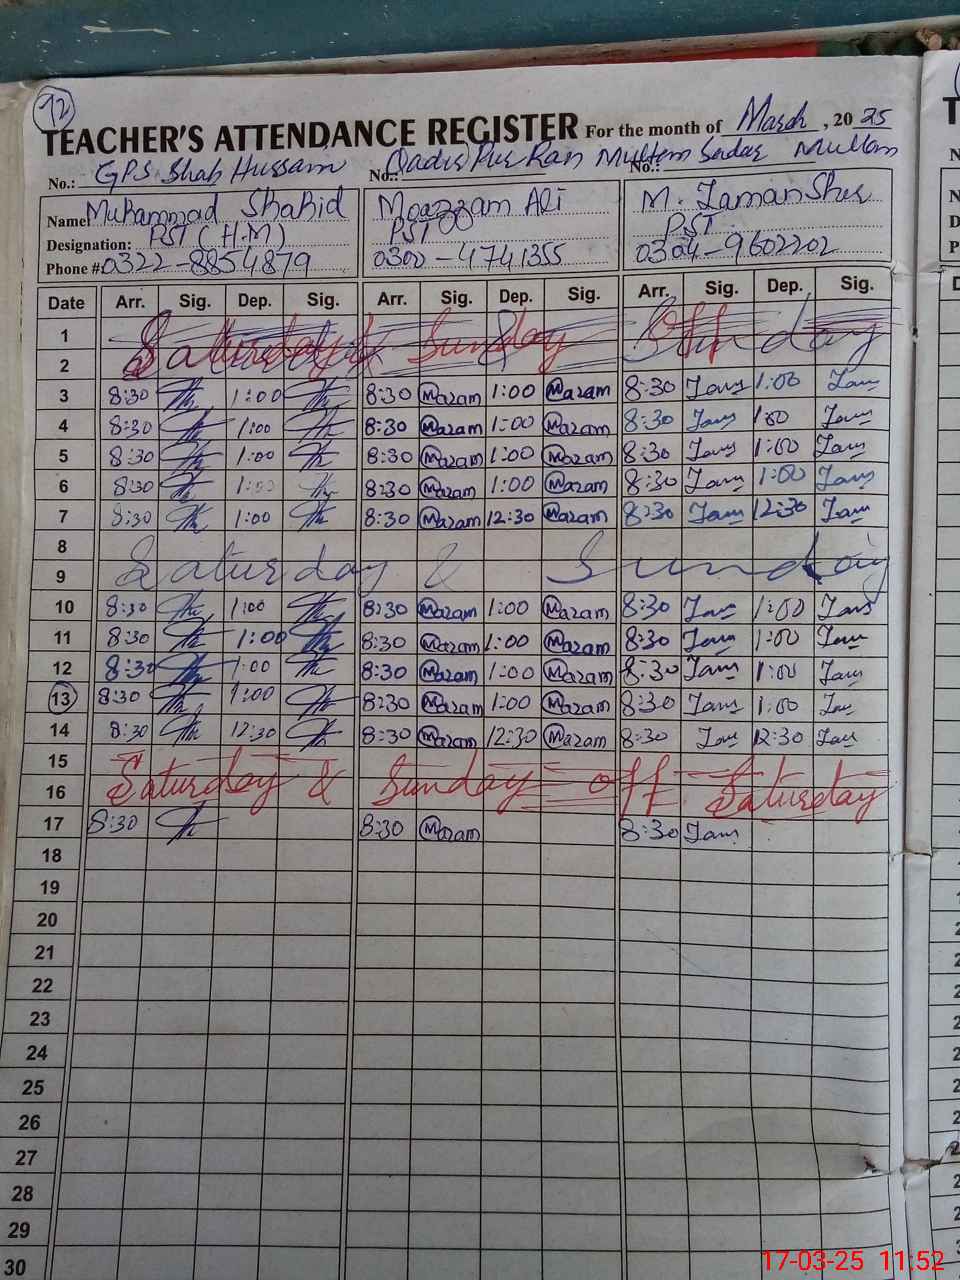 72
TEACHER'S ATTENDANCE REGISTER For the month of March, 2025
No.: GPS Shah Hussain No.: Qadir Pur Ran Multan Sadar No.: Multan
Name Muhammad Shahid Moazzam Ali M. Zaman Sher
Designation: PST (H.M) PST PST
Phone # 0322-8854879 0300-4741355 0304-9602202
Date Arr. Sig. Dep. Sig. Arr. Sig. Dep. Sig. Arr. Sig. Dep. Sig.
1 Saturday & Sunday Off Sunday
2
3 8:30 1:00 8:30 Mazam 1:00 Mazam 8:30 Zam 1:00 Zam
4 8:30 1:00 8:30 Mazam 1:00 Mazam 8:30 Zam 1:00 Zam
5 8:30 1:00 8:30 Mazam 1:00 Mazam 8:30 Zam 1:00 Zam
6 8:30 1:00 8:30 Mazam 1:00 Mazam 8:30 Zam 1:00 Zam
7 8:30 1:00 8:30 Mazam 12:30 Mazam 8:30 Zam 12:30 Zam
8
9 Saturday & Sunday
10 8:30 1:00 8:30 Mazam 1:00 Mazam 8:30 Zam 1:00 Zam
11 8:30 1:00 8:30 Mazam 1:00 Mazam 8:30 Zam 1:00 Zam
12 8:30 1:00 8:30 Mazam 1:00 Mazam 8:30 Zam 1:00 Zam
13 8:30 1:00 8:30 Mazam 1:00 Mazam 8:30 Zam 1:00 Zam
14 8:30 12:30 8:30 Mazam 12:30 Mazam 8:30 Zam 12:30 Zam
15
16 Saturday & Sunday off Saturday
17 8:30 8:30 Mazam 8:30 Zam
18
19
20
21
22
23
24
25
26
27
28
29
30
17-03-25 11:52